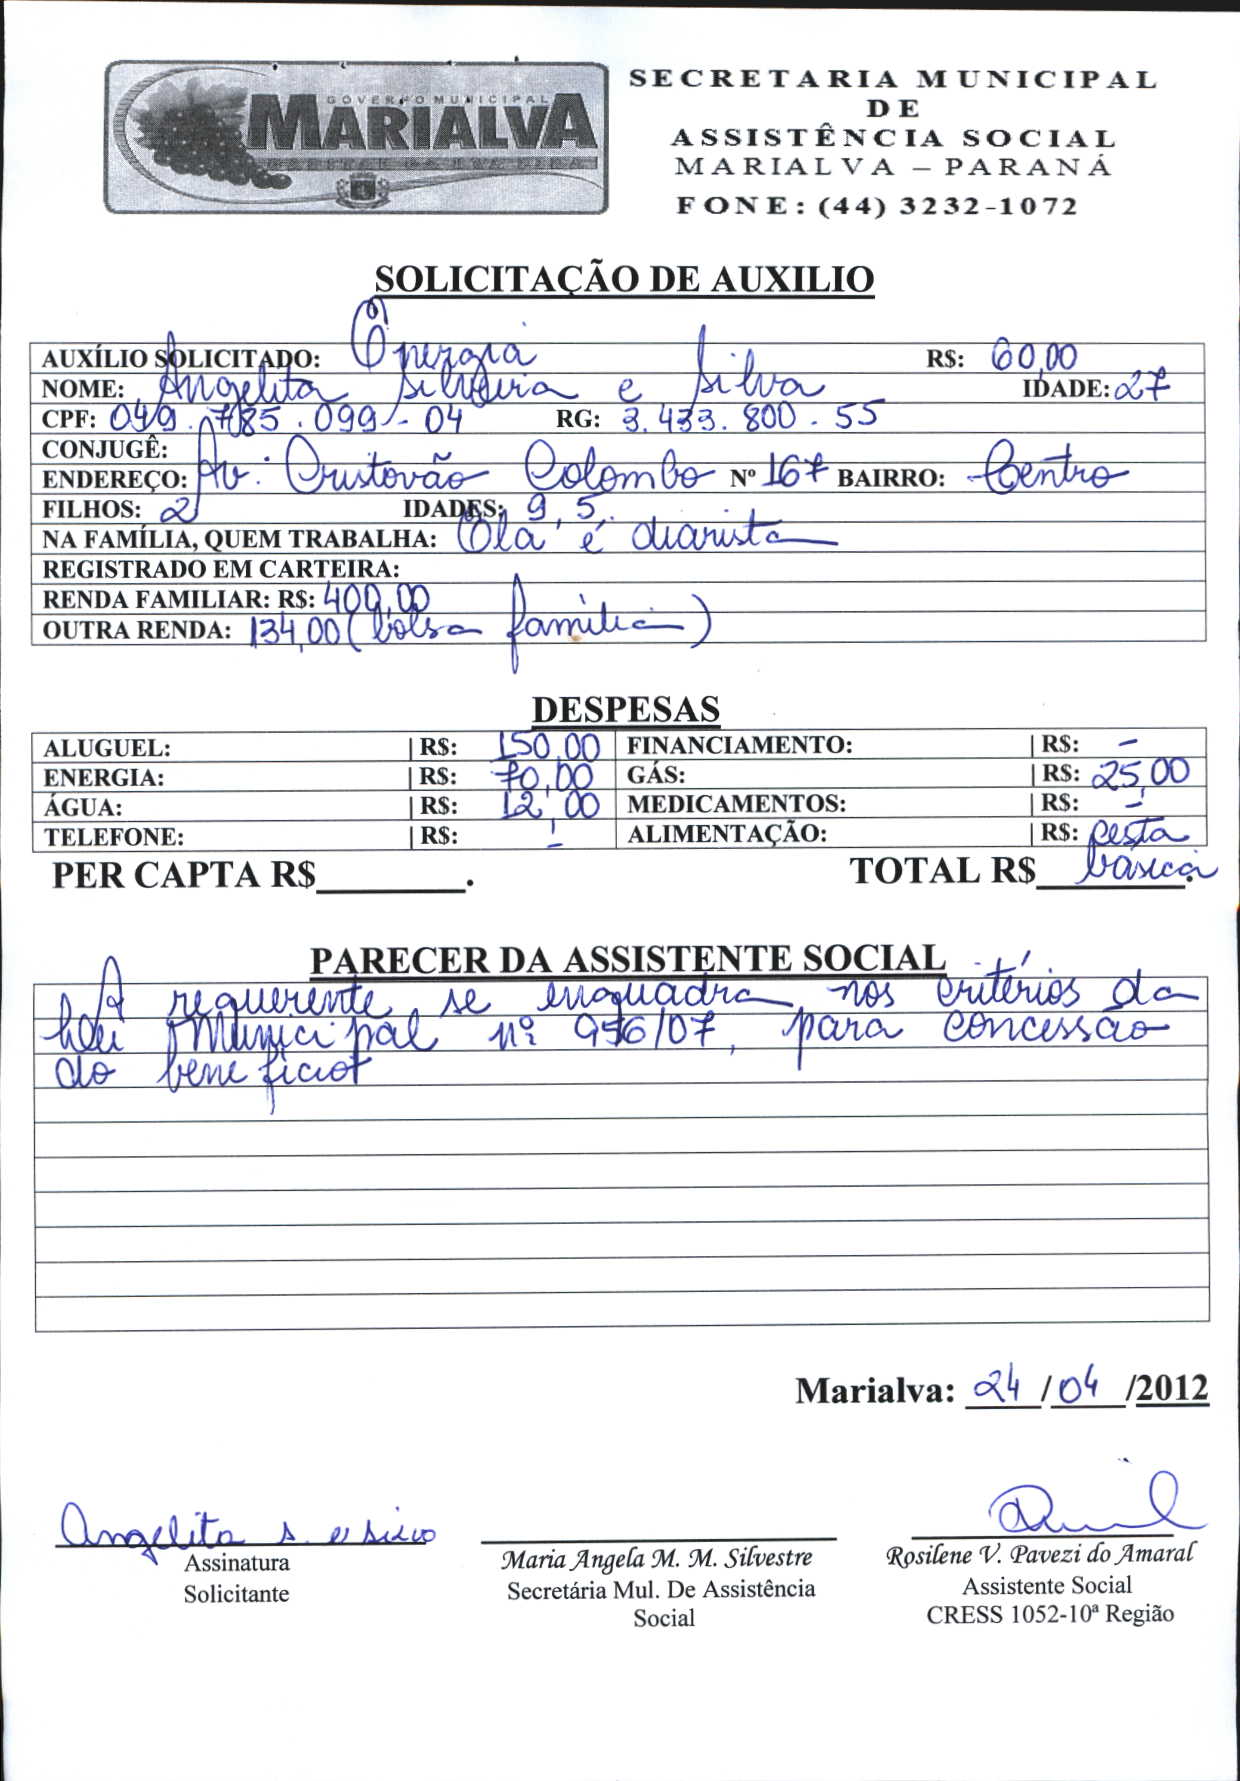 GOVERNO MUNICIPAL
MARIALVA
CAPITAL DA UVA FINA
SECRETARIA MUNICIPAL
DE
ASSISTÊNCIA SOCIAL
MARIALVA – PARANÁ
FONE: (44) 3232-1072
SOLICITAÇÃO DE AUXILIO
AUXÍLIO SOLICITADO: Energia R$: 60,00
NOME: Angelita Silveira e Silva IDADE: 27
CPF: 049.785.099-04 RG: 3.433.800-55
CONJUGÊ:
ENDEREÇO: Av: Cristovão Colombo Nº 167 BAIRRO: Centro
FILHOS: 2 IDADES: 9, 5.
NA FAMÍLIA, QUEM TRABALHA: Ela é diarista
REGISTRADO EM CARTEIRA:
RENDA FAMILIAR: R$: 400,00
OUTRA RENDA: 134,00 (bolsa família)
DESPESAS
ALUGUEL: | R$: 150,00 FINANCIAMENTO: | R$: -
ENERGIA: | R$: 70,00 GÁS: | R$: 25,00
ÁGUA: | R$: 12,00 MEDICAMENTOS: | R$: -
TELEFONE: | R$: - ALIMENTAÇÃO: | R$: cesta
básica
PER CAPTA R$________. TOTAL R$________.
PARECER DA ASSISTENTE SOCIAL
A requerente se enquadra nos critérios da
Lei Municipal nº 956/07, para concessão
do benefício
Marialva: 24/04/2012
Angelita S. e Silva
Assinatura
Solicitante
Maria Angela M. M. Silvestre
Secretária Mul. De Assistência
Social
Rosilene V. Pavezi do Amaral
Assistente Social
CRESS 1052-10ª Região